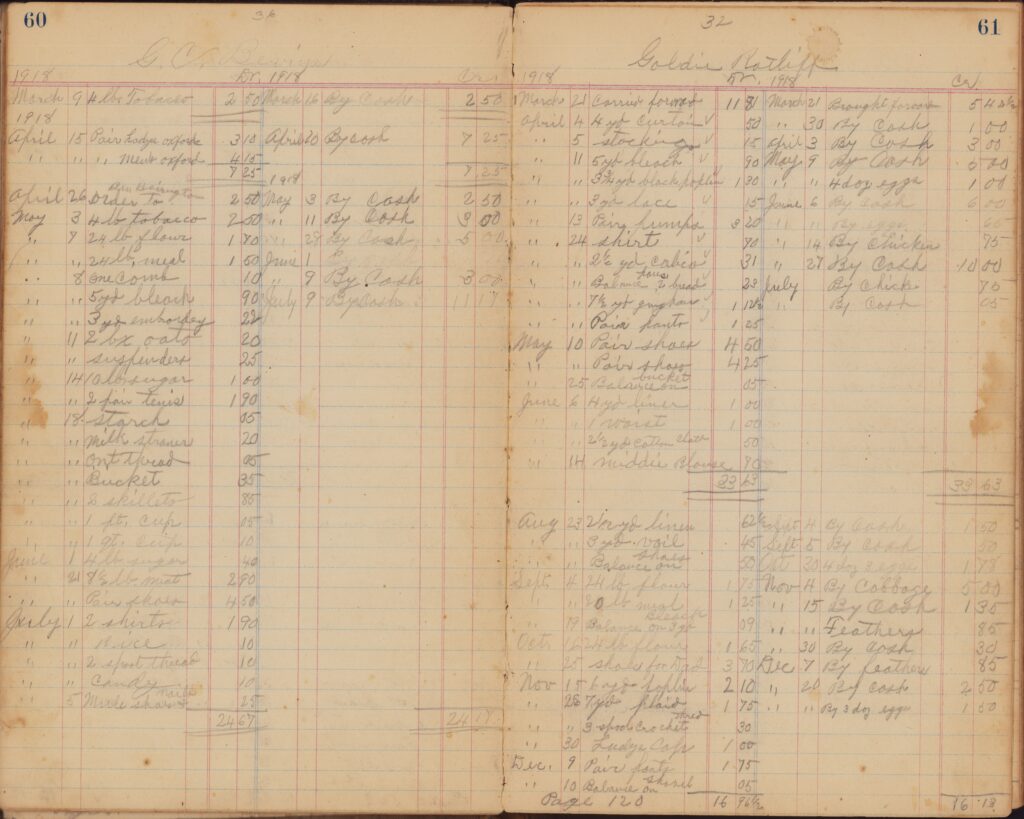 60
36
G. C.
1918 Dr. 1918 Cr.
March 9 4 lb Tobacco 2 50 March 16 By Cash 2 50
1918
April 15 Pair Ladys oxford 3 10 April 20 By cash 7 25
" " " Mens oxford 4 15
7 25 7 25
1918
April 26 Order to 2 50 May 3 By Cash 2 50
May 3 4 lb tobacco 2 00 " 11 By Cash 3 00
" 7 24 lb flour 1 70 " 28 By Cash 5 00
" " 24 lb meal 1 50 June 1
" 8 one Comb 10 " 9 By Cash 3 00
" " 5 yd bleach 90 July 9 By Cash 11 17
" " 3 yd embordey 22
" 11 2 bx oats 20
" " suspenders 25
" 14 10 lb sugar 1 00
" " 2 pair tenis 1 90
" 18 Starch 05
" " Milk straner 20
" " spread 05
" " Bucket 35
" " 2 skillets 85
" " 1 pt. cup 05
" " 1 qt. cup 10
June 1 4 lb sugar 40
" 21 8½ lb meat 2 90
" " Pair shoes 4 50
July 1 2 shirts 1 90
" " 10
" " 2 spool thread 10
" " Candy 10
" 5 Mule shoes nails 25
24 67 24 17
61
32
Goldie Ratliff
1918 Dr. 1918 Cr.
March 21 Carried forward 11 81 March 21 Brought forward 5 44½
April 4 4 yd curtain 50 " 30 By Cash 1 00
" 5 stockings 15 April 3 By Cash 3 00
" 11 5 yd bleach 90 May 9 By Cash 5 00
" " 3½ yd black poplin 1 30 " " 4 doz eggs 1 00
" " 3 yd lace 15 June 6 By Cash 6 00
" 13 Pair pumps 3 20 " " By eggs 60
" 24 shirt 70 " 14 By Chicken 95
" " 2½ yd calico 31 " 27 By Cash 10 00
" " Balance 2 bread pans 23 July By Chick 70
" " 7½ yd gingham 1 12½ " By Cash 05
" " Pair pants 1 25
May 10 Pair shoes 4 50
" Pair shoes 4 25
" 25 Balance on bucket 05
June 6 4 yd linen 1 00
" " 1 waist 1 00
" " 2½ yd cotton cloth 50
" 14 middie Blouse 90
33 63 33 63
Aug 23 2½ yd linen 62½ Sept 4 By Cash 1 50
" " 3 yd voil 45 Sept 5 By Cash 50
" " Balance on shoes 50 Oct 20 4 doz 3 eggs 1 78
Sept 4 24 lb flour 1 75 Nov 4 By Cabbage 5 00
" " 20 lb meal 1 25 " 15 By Cash 1 30
" 19 Balance on 3 yd bleach 09 " " Feathers 85
Oct 12 24 lb flour 1 65 " 30 By Cash 30
" 25 shoes for Dad 3 70 Dec 7 By feathers 85
Nov 15 6 yd poplin 2 10 " 20 By Cash 2 50
" 26 7 yd plaid 1 75 " " By 3 doz eggs 1 50
" " 3 spool crochet thred 30
" 30 Ladys Cap 1 00
Dec. 9 Pair pants 1 75
" 10 Balance on 05
Page 120 16 96½ 16 13